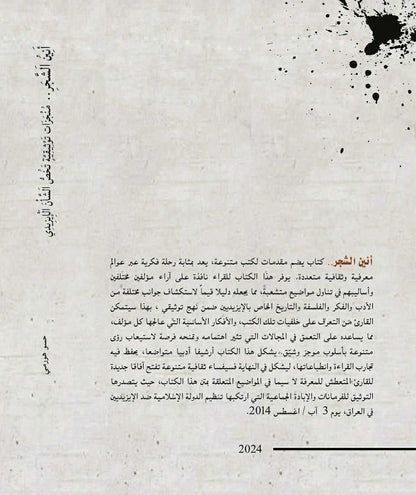 أنين الشَّجر .. مُنجزات توثيقيّة تخصُّ الشأن الإيزيدي
حسو هورمي
أنين الشَّجر.. كتاب يضم مقدمات لكتب متنوعة، يعد بمثابة رحلة فكرية عبر عوالم
معرفية وثقافية متعددة. يوفر هذا الكتاب للقراء نافذة على آراء مؤلفين مختلفين
وأساليبهم في تناول مواضيع متشعبة، مما يجعله دليلا قيماً لاستكشاف جوانب مختلفة من
الأدب والفكر والفلسفة والتاريخ الخاص بالإيزيديين ضمن نهج توثيقي ، بهذا سيتمكن
القارئ من التعرف على خلفيات تلك الكتب، والأفكار الأساسية التي عالجها كل مؤلف،
مما يساعده على التعمق في المجالات التي تثير اهتمامه وتمنحه فرصة لاستيعاب رؤى
متنوعة بأسلوب موجز وشيّق. يشكل هذا الكتاب أرشيفا أدبيا متواضعا، يحفظ فيه
تجارب القراءة وانطباعاتها، ليشكل في النهاية فسيفساء ثقافية متنوعة تفتح آفاقا جديدة
للقارئ المتعطش للمعرفة لا سيما في المواضيع المتعلقة بمتن هذا الكتاب، حيث يتصدرها
التوثيق للفرمانات والإبادة الجماعية التي ارتكبها تنظيم الدولة الإسلامية ضد الإيزيديين
في العراق، يوم 3 آب / اغسطس 2014.
2024